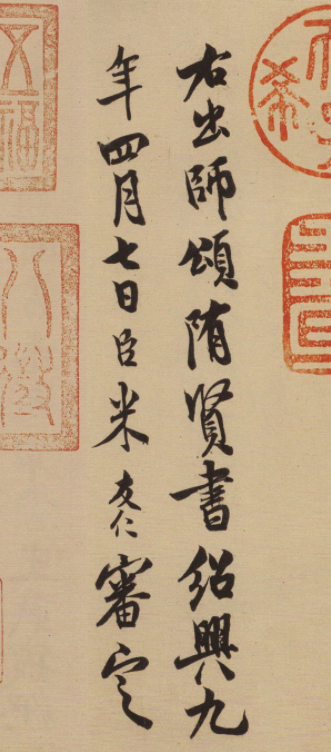 右出師頌隋賢書紹興九
年四月七日臣米友仁審定